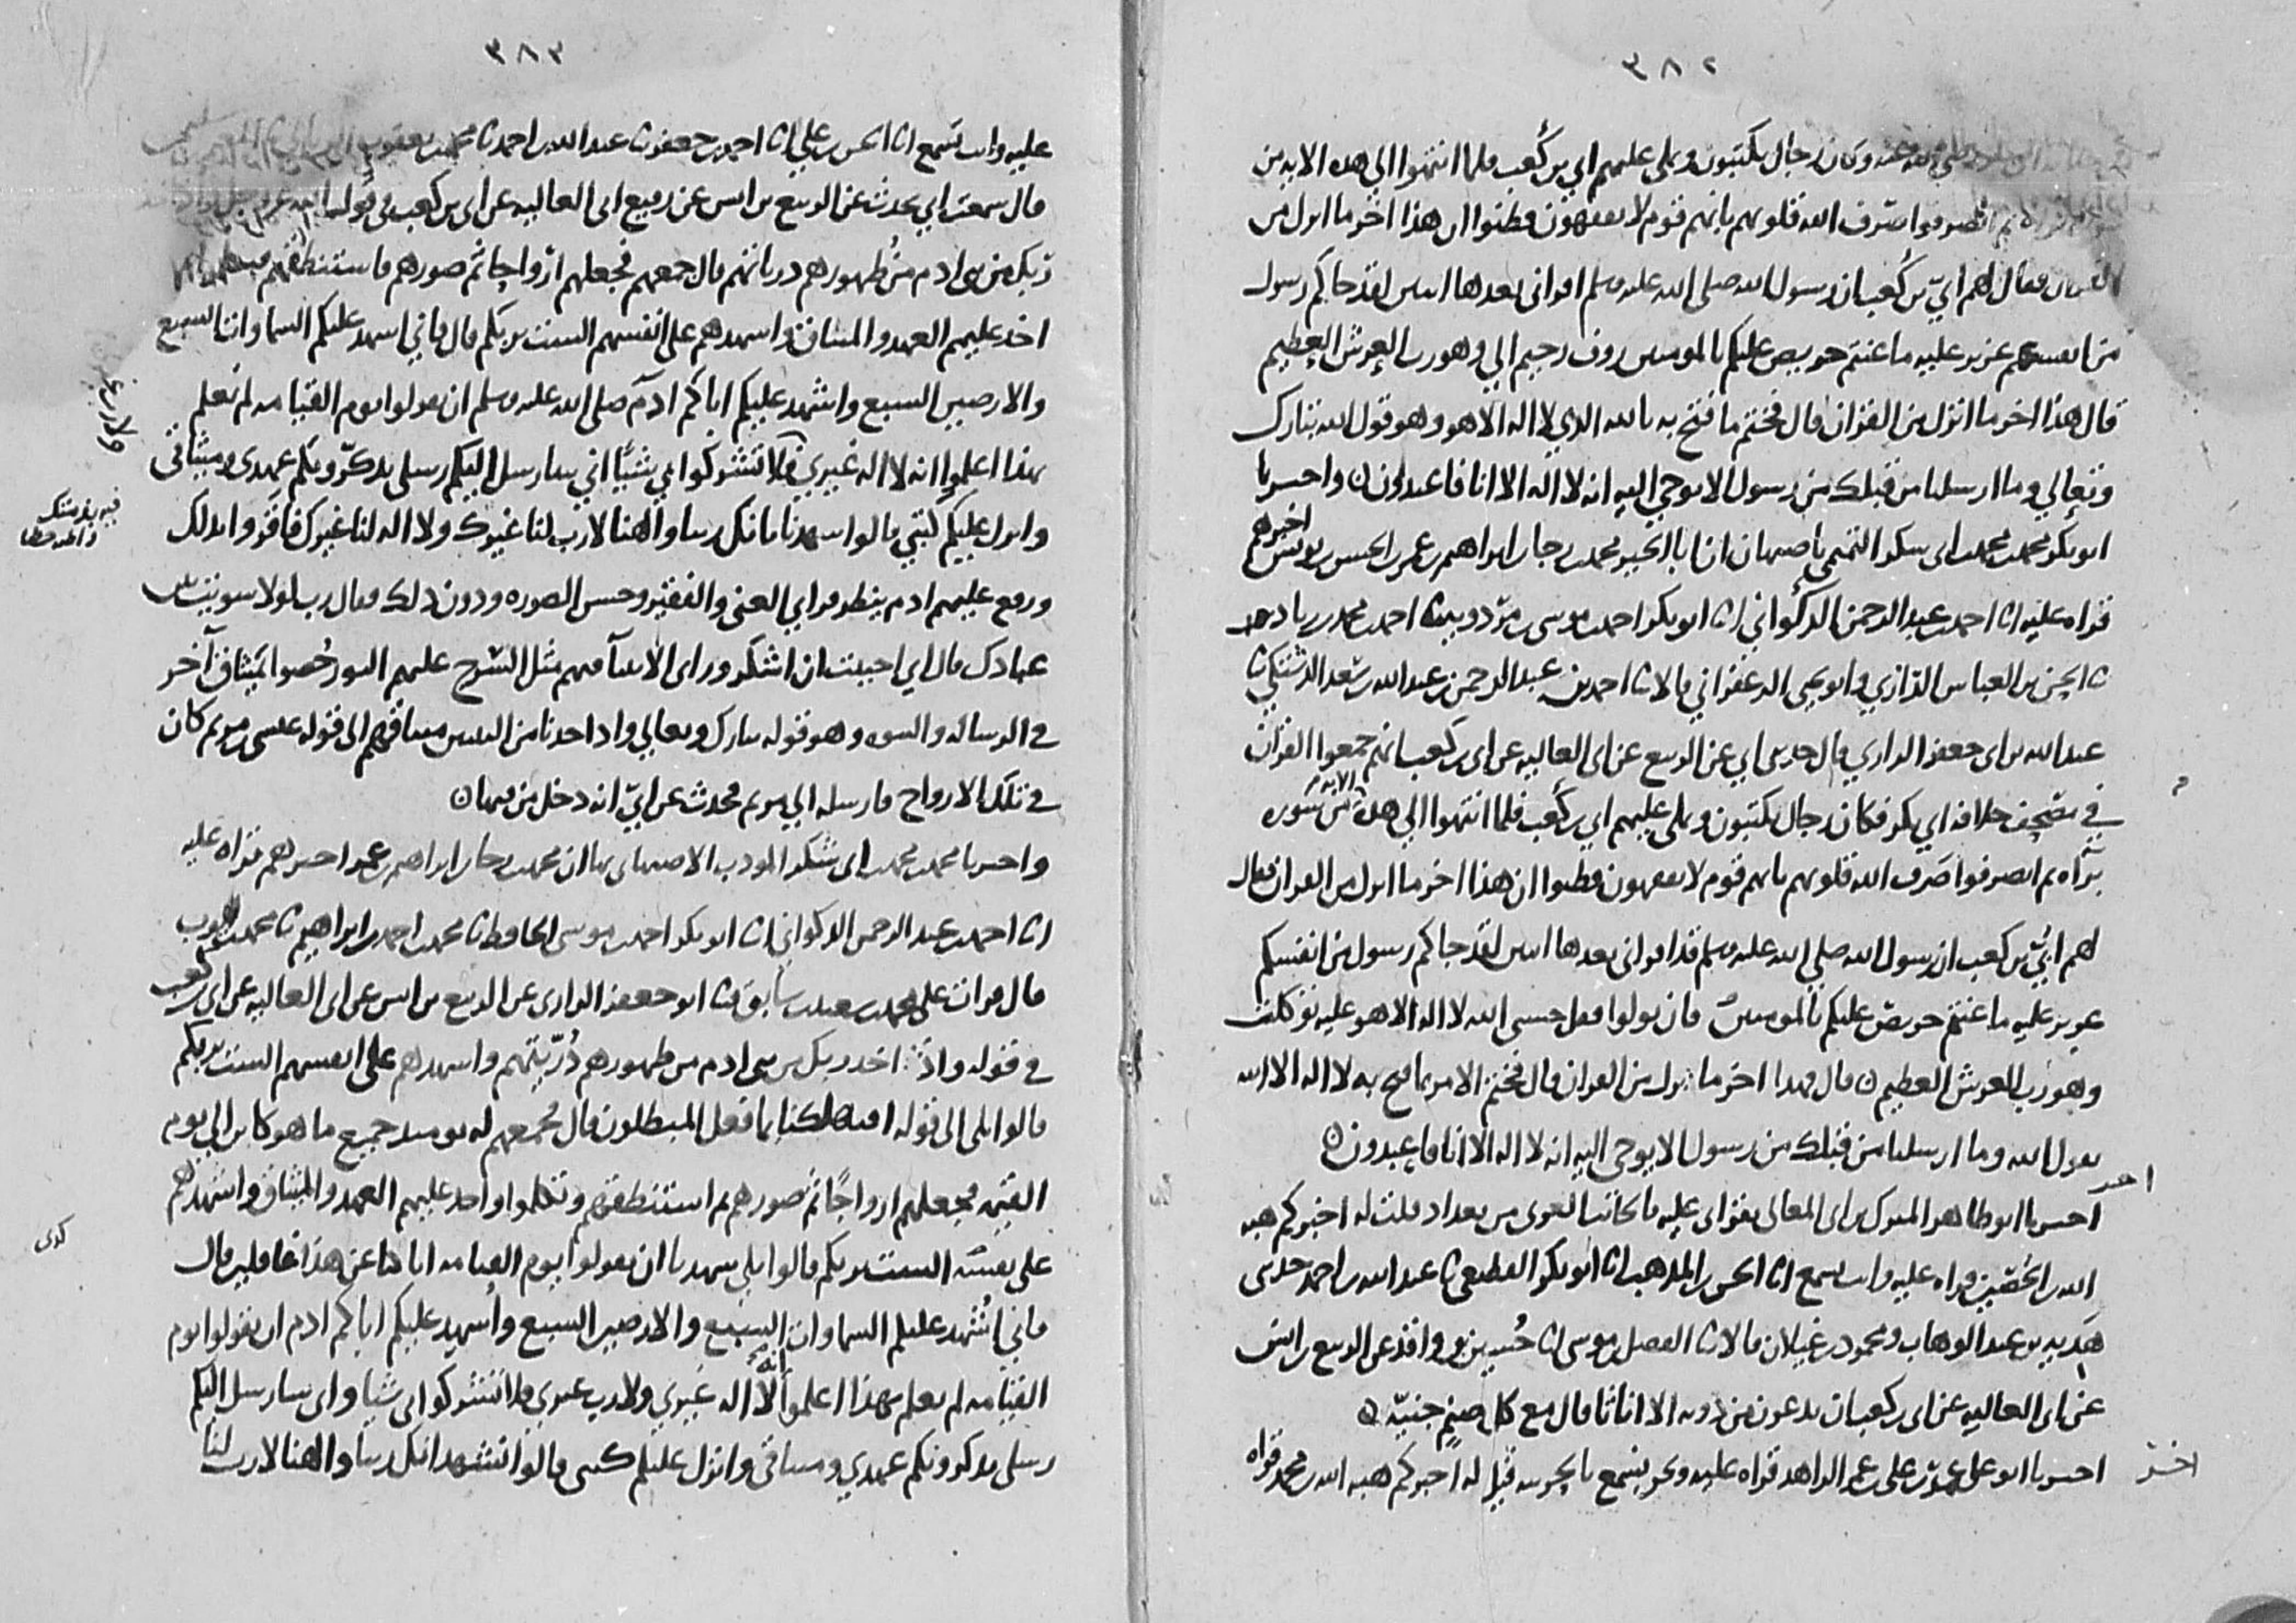 ٣٨٢
رضي الله عنه وكان رجال يكتبون ويملى عليهم ابي بن كعب فلما انتهوا الى هذه الايه من
ثم انصرفوا صرف الله قلوبهم بانهم قوم لا يفقهون فظنوا ان هذا اخر ما انزل من
القران فقال لهم ابيّ بن كعب ان رسول الله صلى الله عليه وسلم اقراني بعدها ايتين لقد جاكم رسول
من انفسكم عزيز عليه ما عنتم حريص عليكم بالمومنين روف رحيم الي وهو رب العرش العظيم
قال هذا اخر ما انزل من القران قال فختم ما فتح به بالله الذي لا اله الا هو وهو قول الله تبارك
وتعالي وما ارسلنا من قبلك من رسول الا نوحي اليه انه لا اله الا انا فاعبدون ن واخبرنا
ابو بكر محمد بن محمد بن ابى سكر التميمي باصبهان ان ابا الخير محمد بن رجا بن ابراهيم بن عمر بن الحسن بن يونس اخبرهم
قراه عليه انا احمد بن عبد الرحمن الذكواني انا ابو بكر احمد بن موسى بن مردويه ثنا احمد بن محمد بن زياد
ثنا الحسن بن العباس الرازي وابو يحيى الزعفراني قالا ثنا احمد بن عبد الرحمن بن عبد الله بن سعد الدشتكي ثنا
عبد الله بن ابى جعفر الرازي قال حدثنى ابي عن الربيع عن ابى العاليه عن ابى بن كعب انهم جمعوا القران
في مصحف خلافه ابي بكر فكان رجال يكتبون ويملى عليهم ابي بن كعب فلما انتهوا الي هذه الايه من سوره
براه ثم انصرفوا صرف الله قلوبهم بانهم قوم لا يفقهون فظنوا ان هذا اخر ما انزل من القران فقال
لهم ابيّ بن كعب ان رسول الله صلى الله عليه وسلم قد اقراني بعدها ايتين لقد جاكم رسول من انفسكم
عزيز عليه ما عنتم حريص عليكم بالمومنين فان تولوا فقل حسبي الله لا اله الا هو عليه توكلت
وهو رب العرش العظيم ن قال فهذا اخر ما نزل من القران قال فختم الامر بما فتح به لا اله الا الله
يقول الله وما ارسلنا من قبلك من رسول الا يوحى اليه انه لا اله الا انا فاعبدون ن
اخبرنا ابو طاهر المبارك بن ابى المعالي بقراتى عليه بالجانب الغربي من بغداد قلت له اخبركم هبه
الله بن الحصين قراه عليه وانت تسمع انا الحسن بن المذهب انا ابو بكر القطيعي ثنا عبد الله بن احمد حدثنى
هديه بن عبد الوهاب ومحمود بن غيلان قالا ثنا الفضل بن موسى انا حسين بن واقد عن الربيع بن انس
عن ابى العاليه عن ابى بن كعب ان يدعون من دونه الا اناثا قال مع كل صنم جنيّه ن
اخبرنا ابو على عمر بن على بن عمر الزاهد قراه عليه ونحن نسمع بالحربيه قيل له اخبركم هبه الله بن محمد قراه
٣٨٣
عليه وانت تسمع انا الحسن بن علي انا احمد بن جعفر ثنا عبد الله بن احمد ثنا محمد بن يعقوب
قال سمعت ابي يحدث عن الربيع بن انس عن رفيع ابى العاليه عن ابى بن كعب في قوله عز وجل واذ اخذ
ربك من بنى ادم من ظهورهم ذرياتهم قال جمعهم فجعلهم ازواجا ثم صورهم فاستنطقهم
اخذ عليهم العهد والميثاق واشهدهم على انفسهم الست بربكم قال فاني اشهد عليكم السماوات السبع
والارضين السبع واشهد عليكم اباكم ادم صلى الله عليه وسلم ان تقولوا يوم القيامه لم نعلم
بهذا اعلموا انه لا اله غيري فلا تشركوا بي شيئا اني سارسل اليكم رسلي يذكّرونكم عهدي وميثاقي
وانزل عليكم كتبي قالوا شهدنا بانك ربنا والهنا لا رب لنا غيرك ولا اله لنا غيرك فاقروا بذلك
ورفع عليهم ادم ينظر فراي الغني والفقير وحسن الصوره ودون ذلك فقال رب لولا سويت بين
عبادك قال اني احببت ان اشكر وراى الانبيا فيهم مثل السرج عليهم النور خُصوا بميثاق آخر
في الرساله والنبوه وهو قوله تبارك وتعالي واذ اخذنا من النبيين ميثاقهم الى قوله عيسى بن مريم كان
في تلك الارواح فارسله الي مريم فحدث عن ابيّ انه دخل من فيها ن
واخبرنا محمد بن محمد بن ابى شكر المودب الاصبهاني بها ان محمد بن رجا بن ابراهيم بن عمر اخبرهم قراه عليه
انا احمد بن عبد الرحمن الذكواني انا ابو بكر احمد بن موسى الحافظ ثنا محمد بن احمد بن ابراهيم ثنا محمد بن ايوب
قال قرات على محمد بن سعيد بن سابق ثنا ابو جعفر الرازى عن الربيع بن انس عن ابى العاليه عن ابى بن كعب
في قوله واذ اخذ ربك من بنى ادم من ظهورهم ذُرّيّتهم واشهدهم على انفسهم الست بربكم
قالوا بلى الى قوله افتهلكنا بما فعل المبطلون قال فجمعهم له يوميذ جميع ما هو كاين الي يوم
القيمه فجعلهم ازواجًا ثم صورهم ثم استنطقهم وتكلموا واخذ عليهم العهد والميثاق واشهدهم
على انفسهم الست بربكم قالوا بلى شهدنا ان تقولوا يوم القيامه انا كنا عن هذا غافلين قال
فاني اُشهد عليكم السماوات السبع والارضين السبع واُشهد عليكم اباكم ادم ان تقولوا يوم
القيامه لم نعلم بهذا اعلموا انه لا اله غيري ولا رب غيري فلا تشركوا بى شيا وانى سارسل اليكم
رسلى يذكرونكم عهدي وميثاقي وانزل عليكم كتبى قالوا نشهد انك ربنا والهنا لا رب لنا